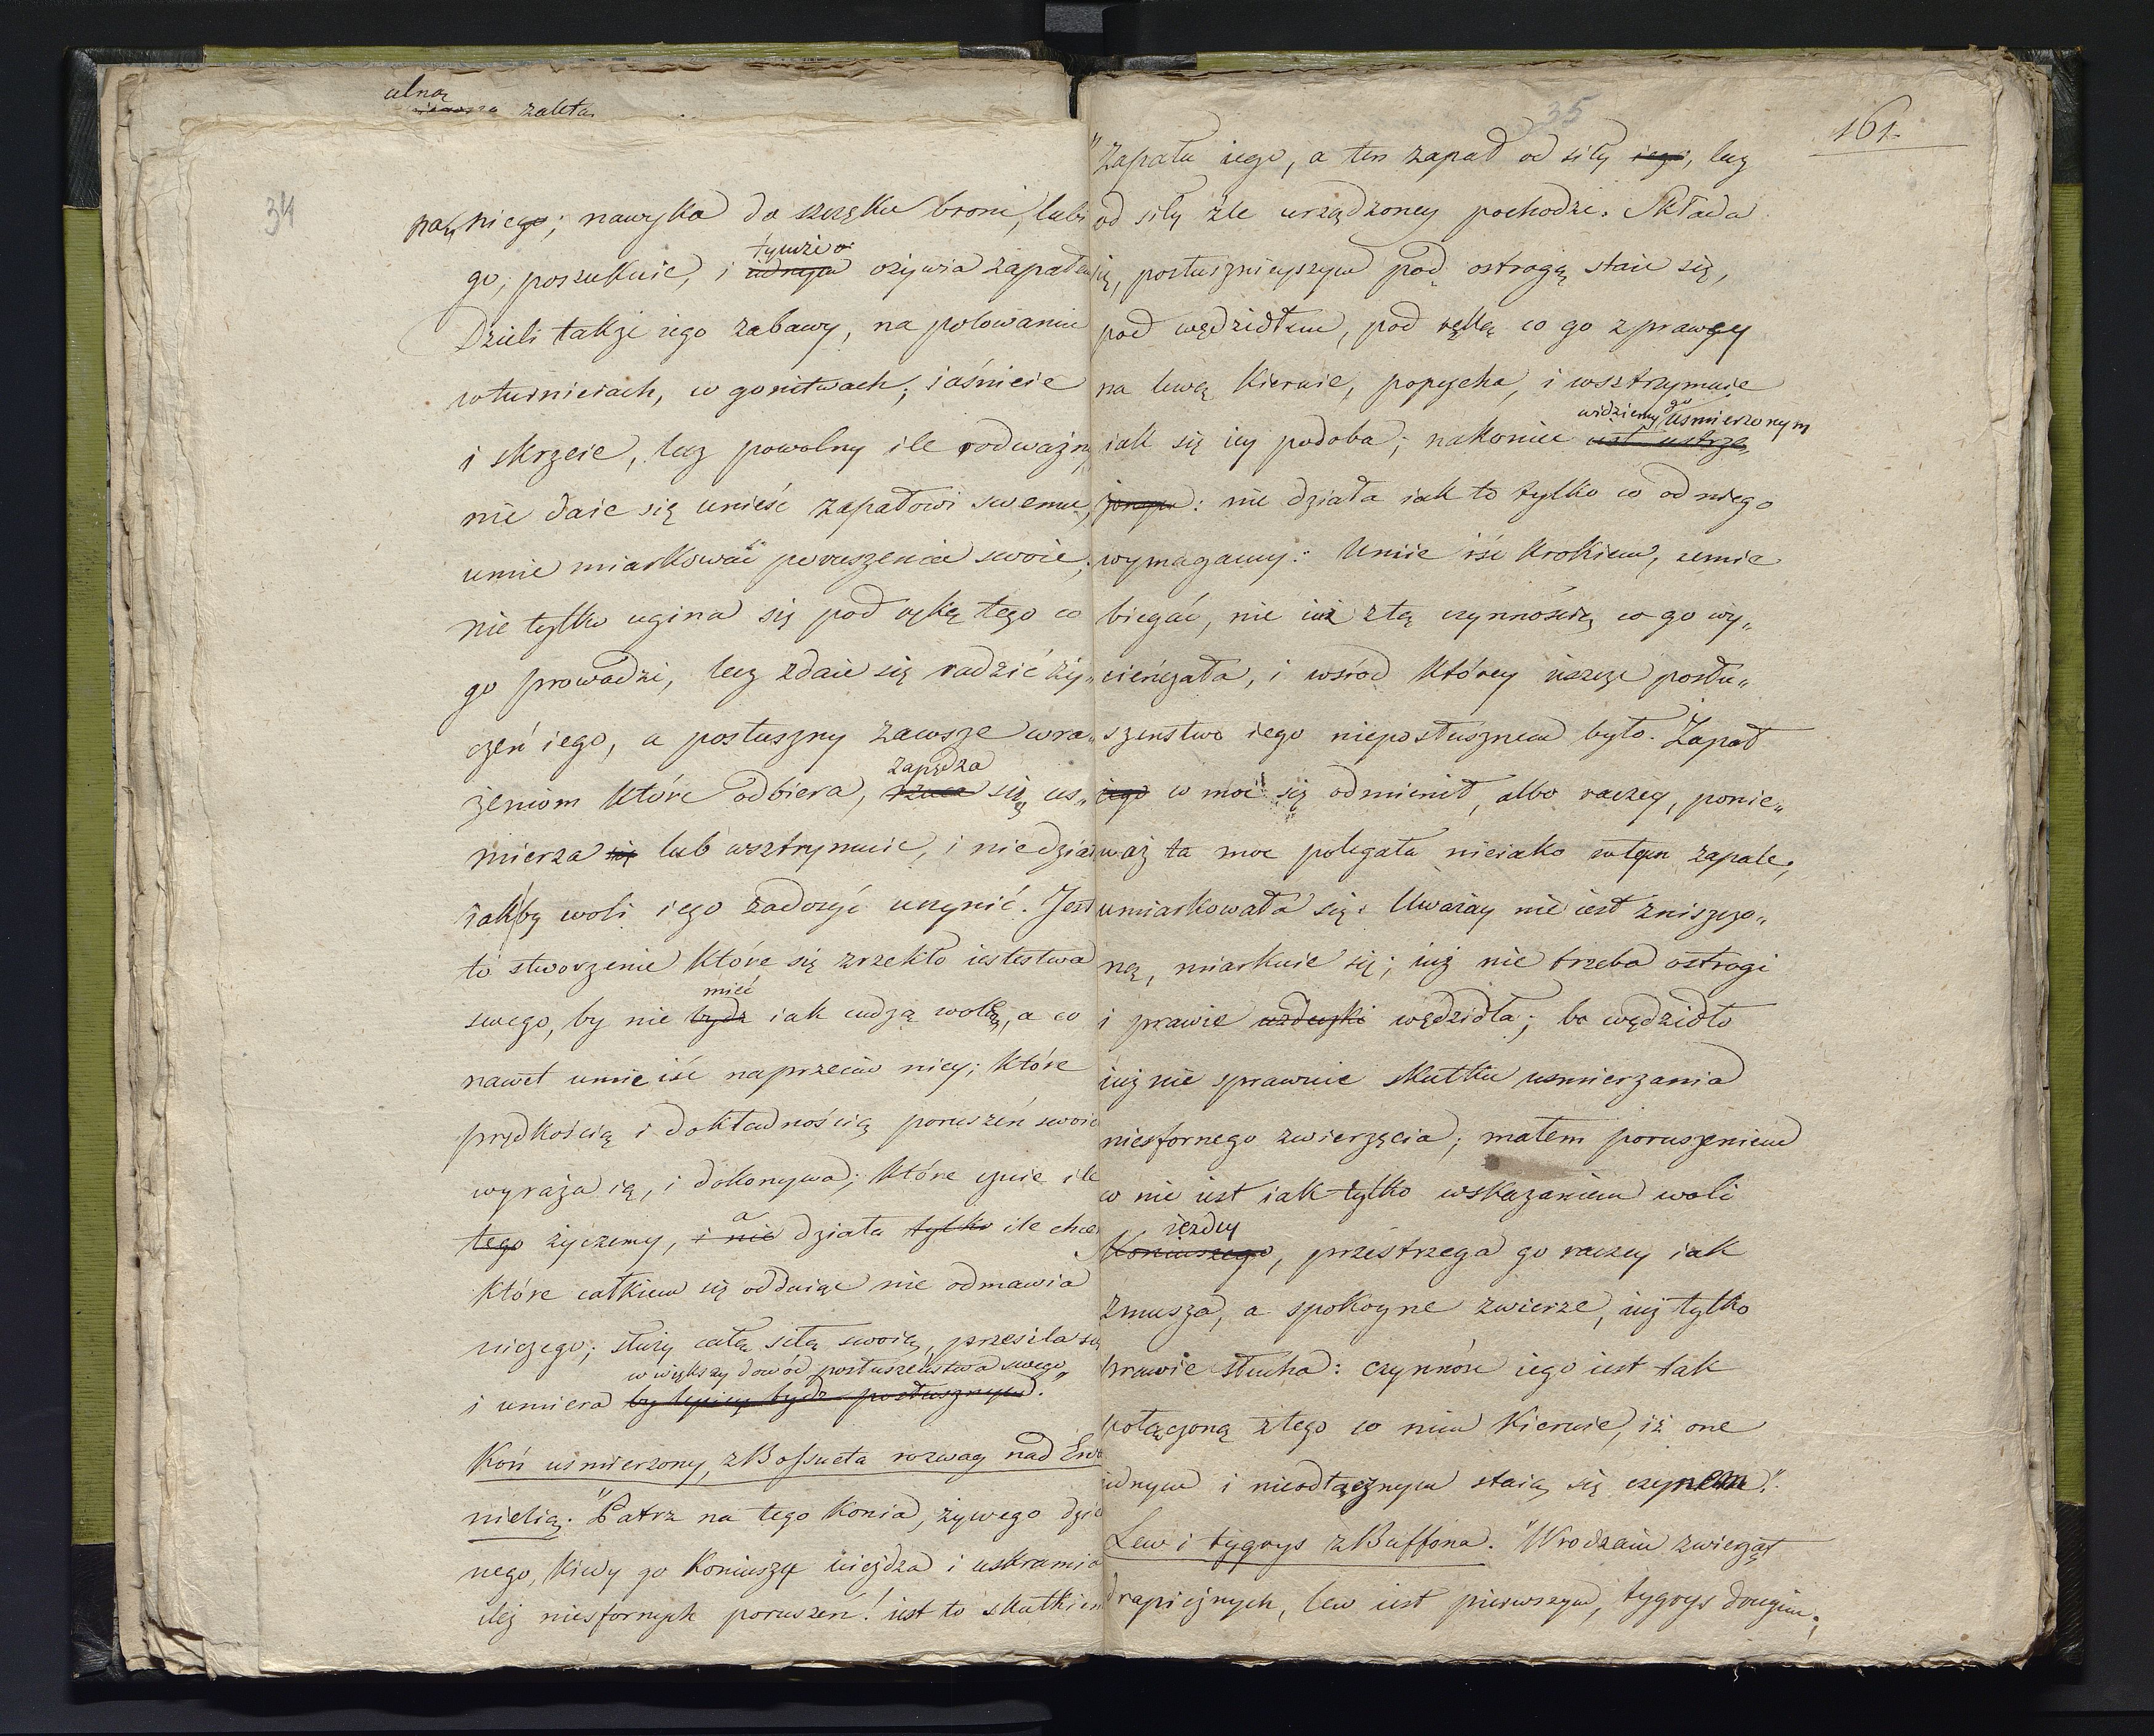 celną
zaleta
34
na niego; nawyka do szczęku broni, lubi
go, poszukuie, i tymże ożywia zapałem
Dzieli także iego zabawy, na polowaniu
w turnieiach, w gonitwach, iaśnieie
i skrzeie, lecz powolny ile odważny
nie daie się unieść zapałowi swemu,
umie miarkować poruszenia swoie;
nie tylko ugina się pod ręką tego co
go prowadzi, lecz zdaie się radzić ży„
czeń iego, a posłuszny zawsze wra„
żeniom które odbiera, zapędza się, us„
mierza się lub wsztrymuie, i nie dzia
iak by woli iego zadosyć uczynić. Jest
to stworzenie które się zrzekło iestestwa
swego, by nie mieć iak cudzą wolą, a co
nawet umie iść naprzeciw niey; które
prędkością i dokładnością poruszeń swoic
wyraża ią, i dokonywa; które czuie ile
tego życzemy, i nie a działa tylko ile chce
które całkiem się oddaiąc nie odmawia
niczego; służy całą siłą swoią, przesila się
w większy dowód posłuszeństwa swego„
i umiera by lepiey bydź posłusznym.
Koń uśmierzony, z Bossueta rozwag nad Ewa
nielią. "Patrz na tego konia, żywego dzi
nego, kiedy go koniuszy uieżdza i uskramia
ileż niesfornych poruszeń! iest to skutkiem
35
161.
"Zapału iego, a ten zapał od siły iego, lecz
od siły źle urządzoney pochodzi. Składa
się, posłusznieyszym pod ostrogą staie się,
pod wędzidłem, pod ręką co go z prawey
na lewą kieruie, popycha, i wsztrzymuie
widziemy go uśmierzonym
iak się iey podoba; nakoniec
: nie działa iak to tylko co od niego
wymagamy: Umie iść krokiem, umie
biegać, nie iuż z tą czynnością co go wy„
cieńczała, i wśrod którey ieszcze posłu„
szenstwo iego nieposłusznem było. Zapał
iego w moc się odmienił, albo raczey, ponie„
waż ta moc polegała nieiako w tym zapale,
umiarkowała się. Uważay nie iest zniszczo„
ną, miarkuie się; iuż nie trzeba ostrogi
i prawie uzdeczki wędzidła; bo wędzidło
iuż nie sprawuie skutku usmierzania
niesfornego zwierzęcia; małem poruszeniem
co nie iest iak tylko wskazaniem woli
iezdcy
Koniuszego, przestrzega go raczey iak
zmusza, a spokoyne zwierze, iuż tylko
prawie słucha: czynność iego iest tak
połączoną z tego co nim kieruie, iż one
iednym i nieodłącznym staią się czynem."
Lew i tygrys z Buffona. "W rodzaiu zwierząt
drapieżnych, lew iest pierwszym, tygrys drugim;